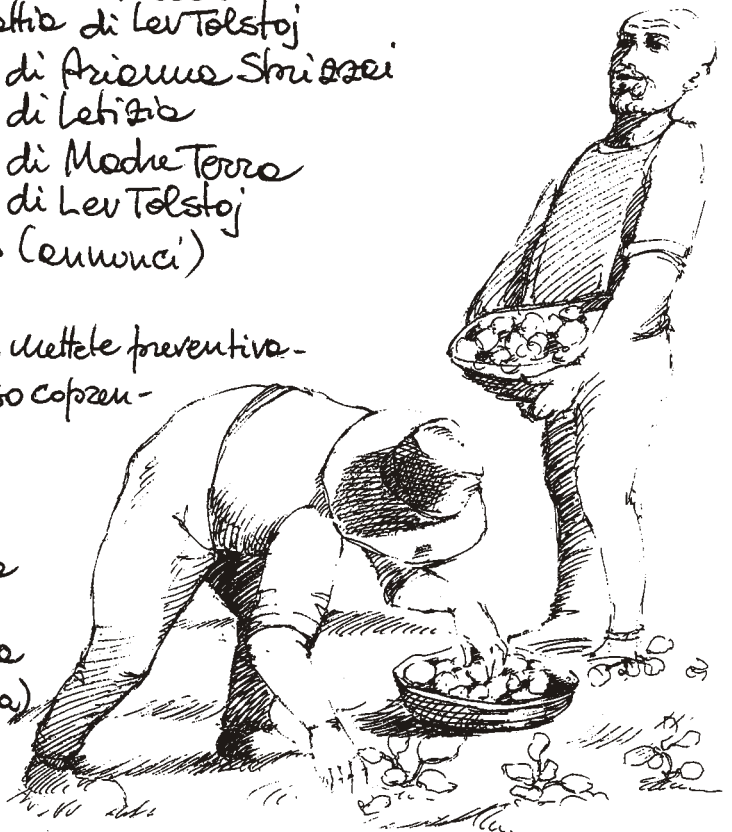 attia di Lev Tolstoj
di Arianna Strizzai
di Letizia
di Madre Terra
di Lev Tolstoj
(annunci)
mettete preventiva-
so copren-
a)